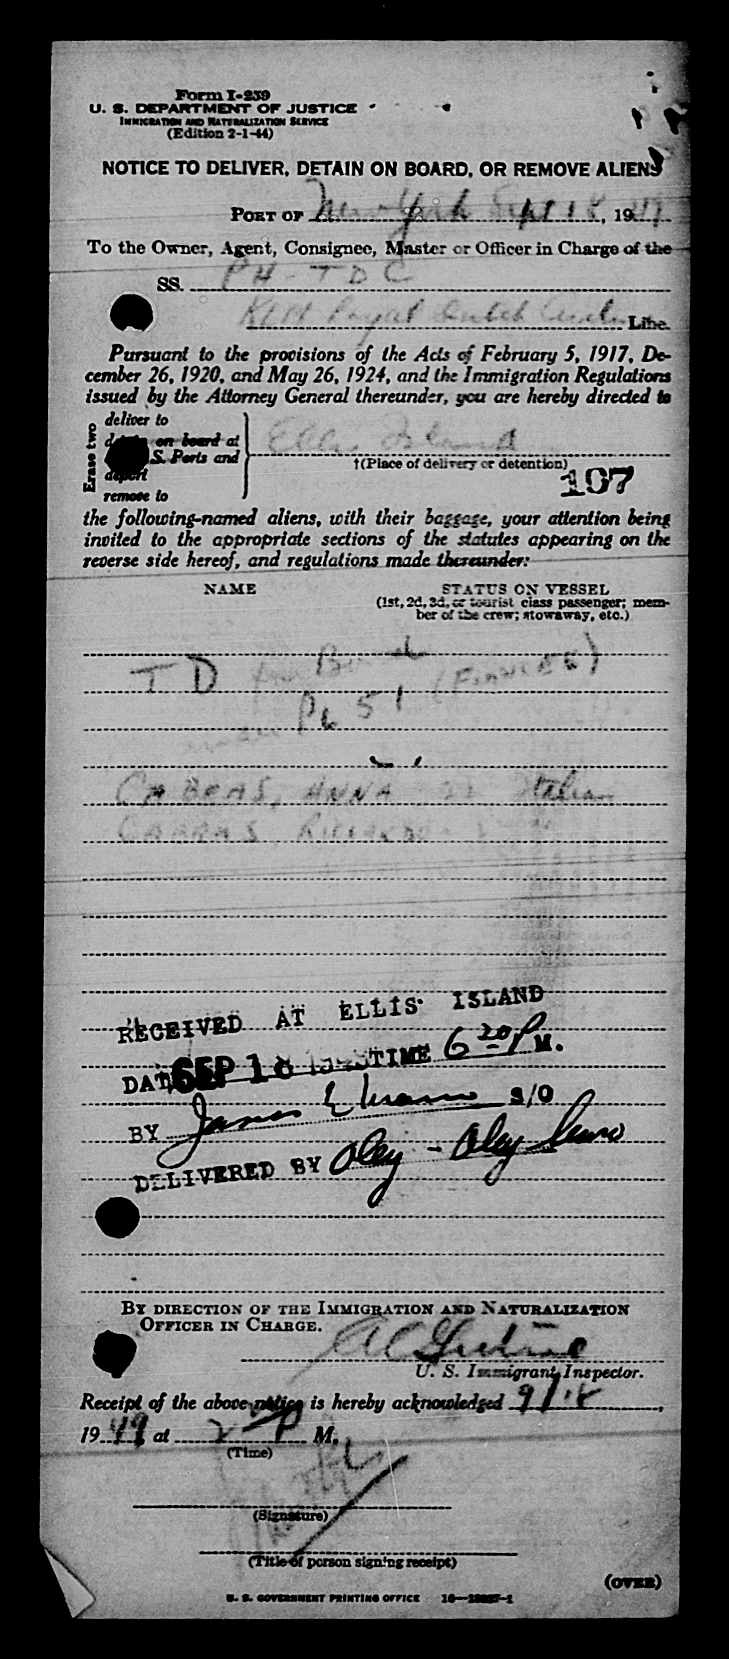 Form I-259
U. S. DEPARTMENT OF JUSTICE
IMMIGRATION AND NATURALIZATION SERVICE
(Edition 2-1-44)
NOTICE TO DELIVER, DETAIN ON BOARD, OR REMOVE ALIENS
PORT OF New York Sept 18, 19
To the Owner, Agent, Consignee, Master or Officer in Charge of the
SS. PH-TDC
KLM Royal Dutch Line.
Pursuant to the provisions of the Acts of February 5, 1917, De-
cember 26, 1920, and May 26, 1924, and the Immigration Regulations
issued by the Attorney General thereunder, you are hereby directed to
Erase two
deliver to
on board at
S. Ports and
deport
remove to
Ellis Island
†(Place of delivery or detention)
107
the following-named aliens, with their baggage, your attention being
invited to the appropriate sections of the statutes appearing on the
reverse side hereof, and regulations made thereunder:
NAME
STATUS ON VESSEL
(1st, 2d, 3d, or tourist class passenger; mem-
ber of the crew; stowaway, etc.)
TD
51
ANNA 22 Italian
RECEIVED AT ELLIS ISLAND
DATE SEP 18 TIME 6 20 P M.
BY James S/O
DELIVERED BY Oley - Oley
BY DIRECTION OF THE IMMIGRATION AND NATURALIZATION
OFFICER IN CHARGE.
U. S. Immigrant Inspector.
Receipt of the above notice is hereby acknowledged 9/18,
19 49 at 2 P M.
(Time)
(Signature)
(Title of person signing receipt)
(OVER)
U. S. GOVERNMENT PRINTING OFFICE